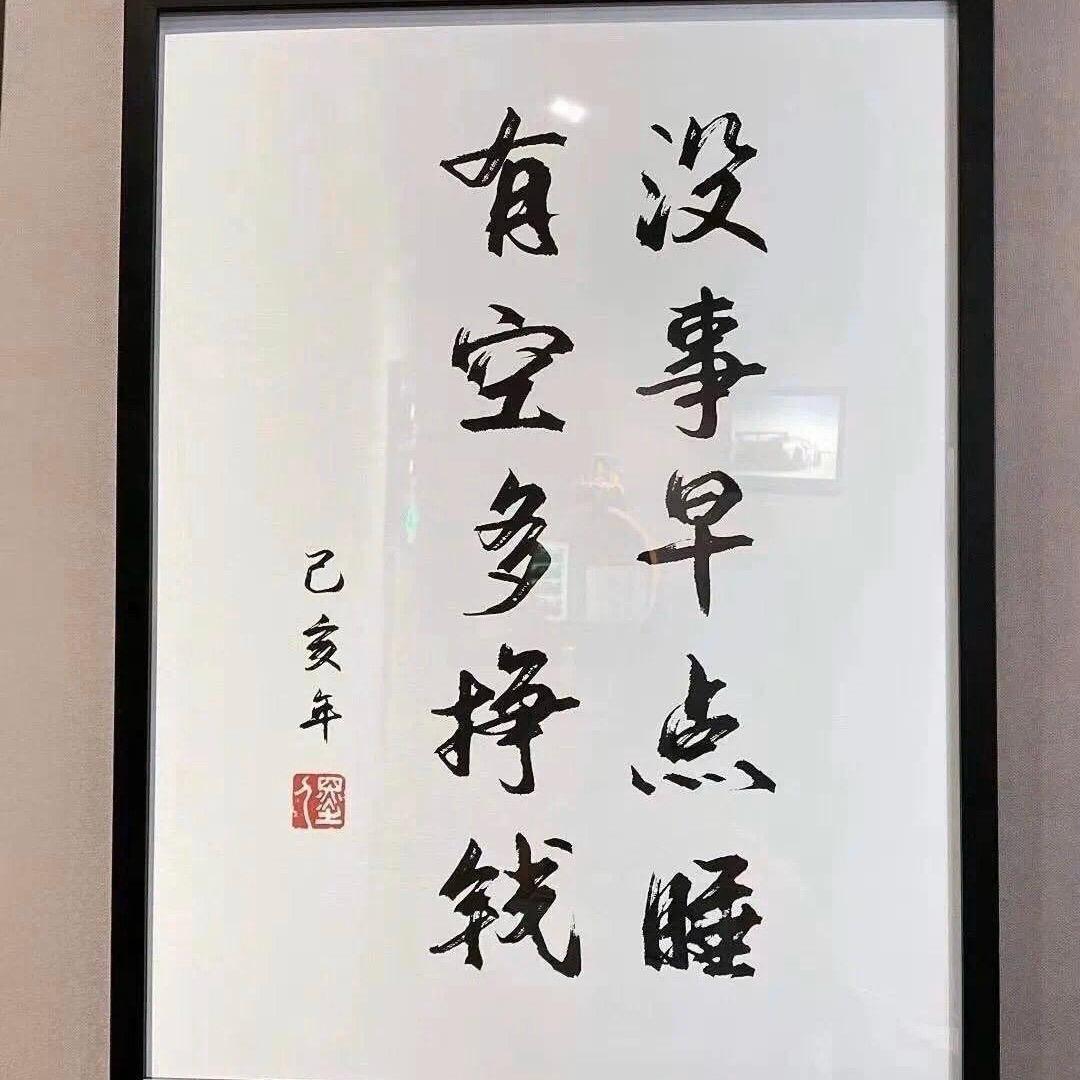 没事早点睡
有空多挣钱
己亥年